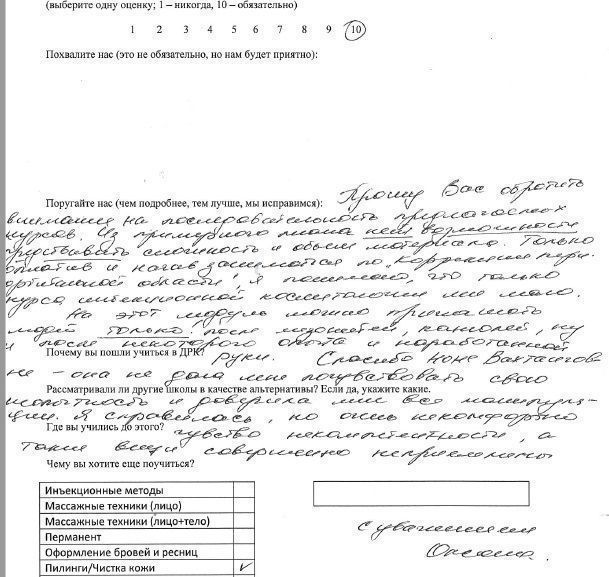 (выберите одну оценку; 1 – никогда, 10 – обязательно)
1 2 3 4 5 6 7 8 9 10
Похвалите нас (это не обязательно, но нам будет приятно):
Поругайте нас (чем подробнее, тем лучше, мы исправимся): Прошу Вас обратить
внимание на последовательность предлагаемых
курсов. Из примерного плана нет возможности
сложность и объем материала. Только
оплатив и начав заниматься по "Коррекция пери-
орбитальной области", я понимаю, что только
курса инъекционной косметологии мне мало.
На этот модуль можно приглашать
людей только после канюлей, ну
и после некоторого опыта и наработанной
Почему вы пошли учиться в ДРК? руки. Спасибо Ноне Вахтангов-
не - она не дала мне почувствовать свою
Рассматривали ли другие школы в качестве альтернативы? Если да, укажите какие.
и доверила мне все манипуля-
ции. Я справилась, но очень некомфортно
Где вы учились до этого? чувство некомпетентности, а
такие вещи совершенно неприемлемы
Чему вы хотите еще поучиться?
Инъекционные методы
Массажные техники (лицо)
Массажные техники (лицо+тело)
Перманент
Оформление бровей и ресниц
Пилинги/Чистка кожи ✓
с уважением
Оксана.